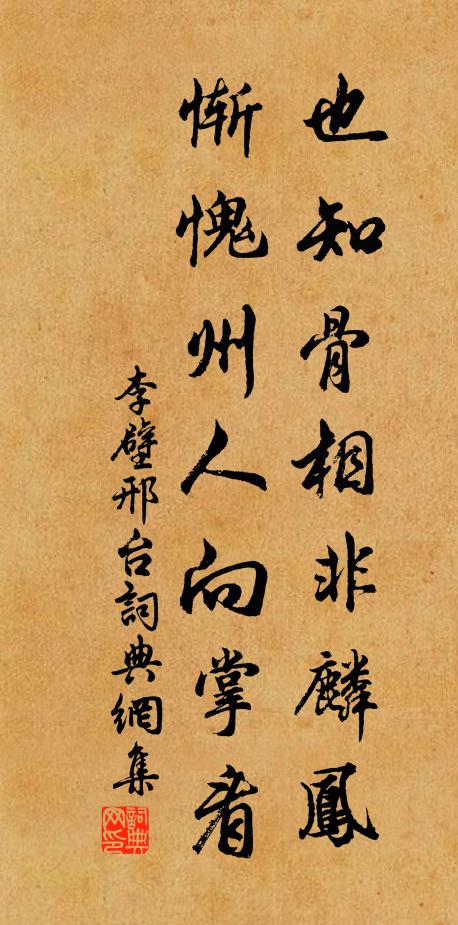 也知骨相非麟鳳
慚愧州人向掌看
李壁邢台詞典網集
詞典网印